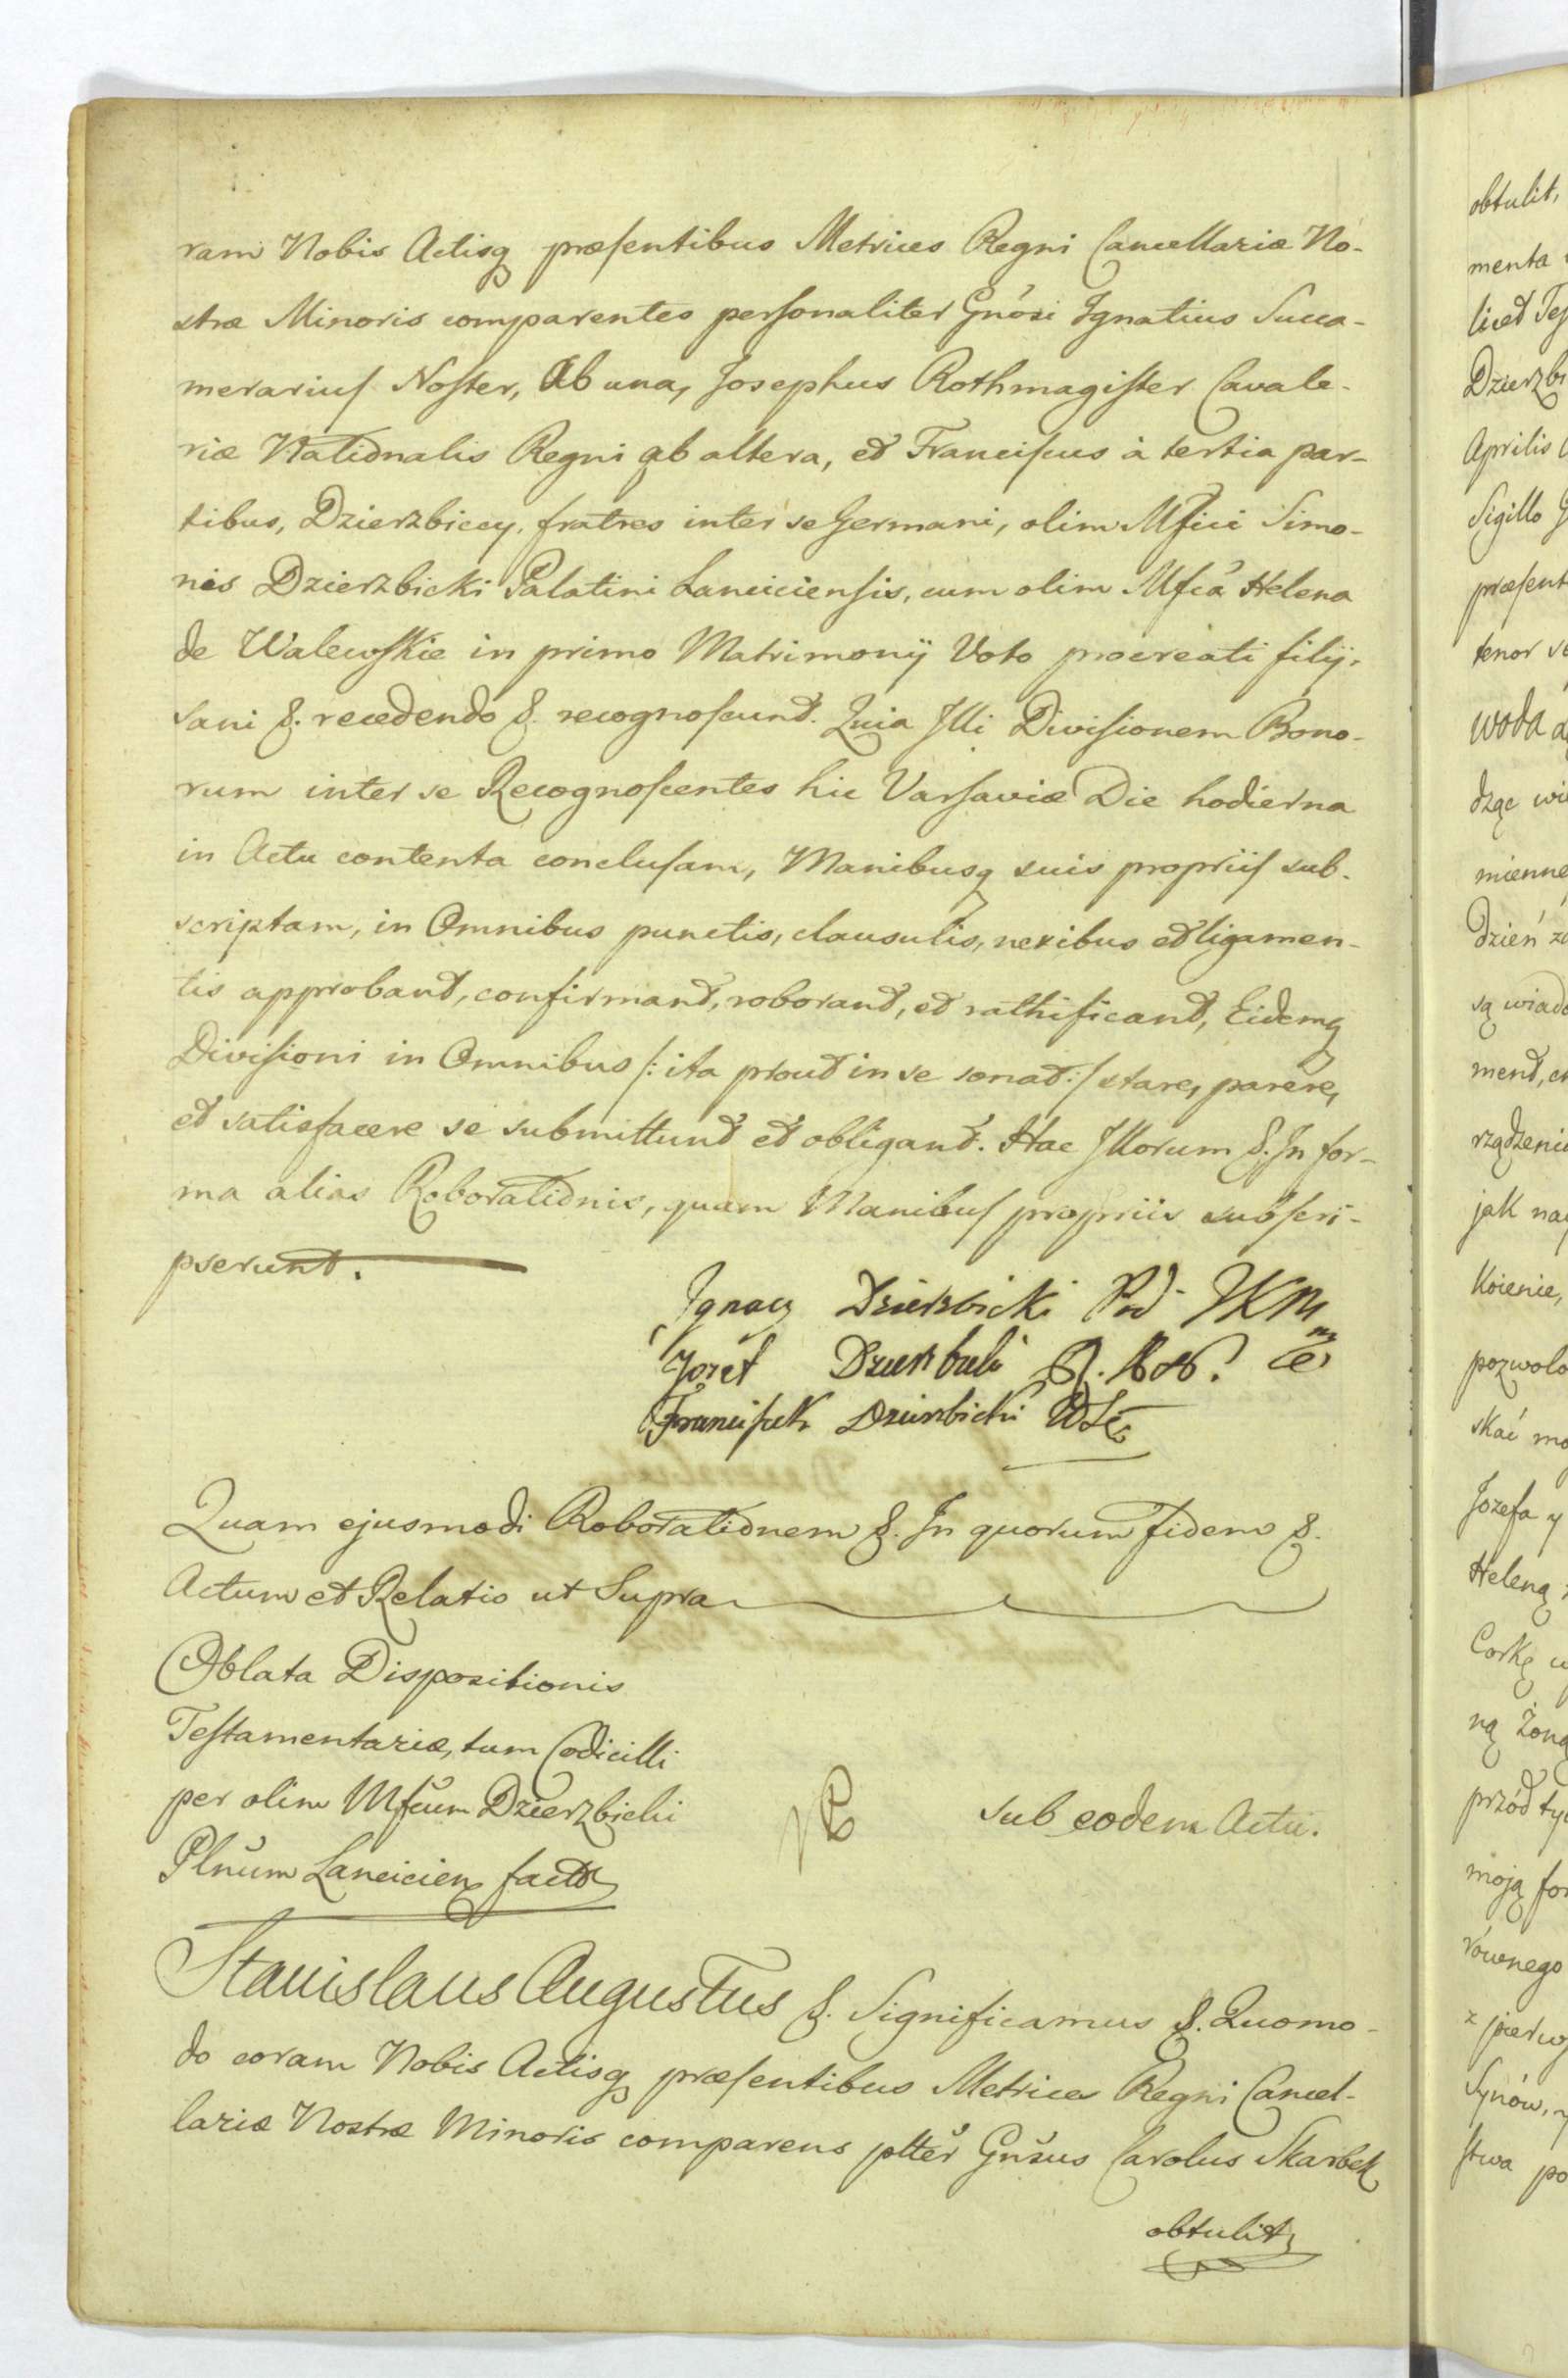 ram Nobis Actisq præsentibus Metrices Regni Cancellariæ No-
stræ Minoris comparentes personaliter Gnósi Ignatius Succa-
merarius Noster, Ab una, Josephus Rothmagister Cavale-
riæ Nationalis Regni ab altera, et Franciscus à tertia par-
tibus, Dzierzbiccy, fratres inter se Germani, olim Mfici Simo-
nis Dzierzbicki Palatini Lanciciensis, cum olim Mfca Helena
de Walewskie in primo Matrimonÿ Voto procreati filÿ,
sani &. recedendo &. recognoscunt. Quia Illi Divisionem Bono-
rum inter se Recognoscentes hic Varsaviæ Die hodierna
in Actu contenta conclusam, Manibusq suis propriis sub-
scriptam, in Omnibus punctis, clausulis, nexibus et ligamen-
tis approbant, confirmant, roborant, et rathificant, Eidemq
Divisioni in Omnibus /: ita prout in se sonat :/ stare, parere,
et satisfacere se submittunt et obligant. Hac Illorum &. In for-
ma alias Roborationis, quam Manibus propriis subscri-
pserunt.
Ignacy Dzierzbicki Pod JKM
Jozef Dzierzbicki R. K N.
Franciszek Dzierzbicki WŁ
Quam ejusmodi Roborationem &. In quorum fidem &.
Actum et Relatio ut Supra
Oblata Dispositionis
Testamentariæ, tum Codicilli
per olim Mfcum Dzierzbicki
Plnum Lancicien factæ
sub eodem Actu.
Stanislaus Augustus &. Significamus &. Quomo-
do coram Nobis Actisq præsentibus Metrices Regni Cancel-
lariæ Nostræ Minoris comparens pltter Gnsus Carolus Skarbek
obtulit
obtulit,
menta
licet
Dzierzbi
Aprilis
Sigillo
præsent
tenor
woda
dząc
mienne
dzień
są wiado
ment,
rządzeni
jak
Koienie,
pozwolo
skać
Jozefa y
Heleną
Corkę
ną Żoną
przód
moją
równego
z pierw
Synów,
stwa po